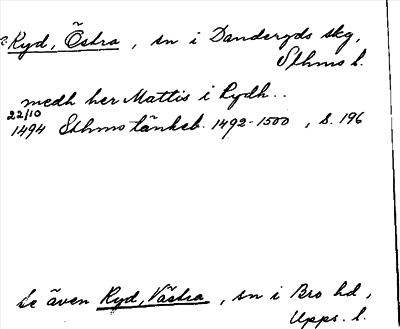 Ryd, Östra, sn i Danderyds skg,
Sthms l.
medh her Mattis i Rydh..
22/10
1494 Sthms tänkeb. 1492-1500, s. 196
Se även Ryd, Västra, sn i Bro hd,
Upps. l.